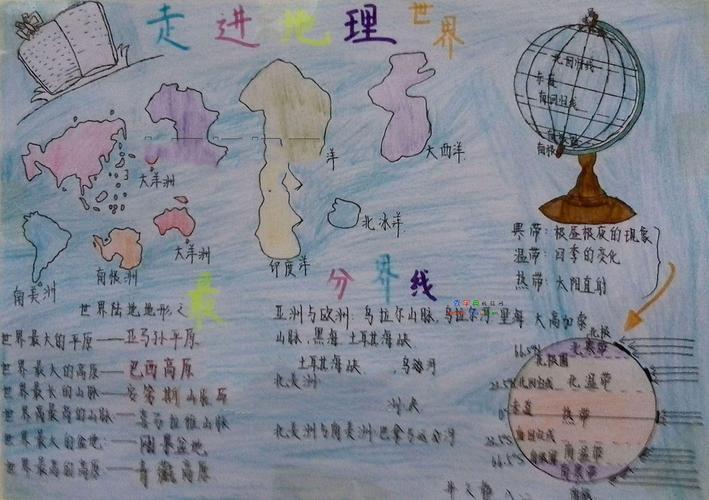 走进地理世界
北回归线
赤道
南回归线
大洋洲
洋
大西洋
北冰洋
印度洋
大洋洲
南极洲
南美洲
寒带：极昼极夜的现象
温带：四季的变化
热带：太阳直射
世界陆地地形之最
世界最大的平原——亚马孙平原
世界最大的高原——巴西高原
世界最长的山脉——安第斯山脉
世界最高的山脉——喜马拉雅山脉
世界最大的盆地——刚果盆地
世界最高的高原——青藏高原
分界线
亚洲与欧洲：乌拉尔山脉，乌拉尔河 里海 大高加索
山脉，黑海 土耳其海峡
土耳其海峡
北美洲
北美洲与南美洲：巴拿马运河
北寒带
66.5°N
北极圈
23.5°N
北回归线
北温带
0°
赤道
热带
23.5°S
南回归线
66.5°S
南温带
南寒带